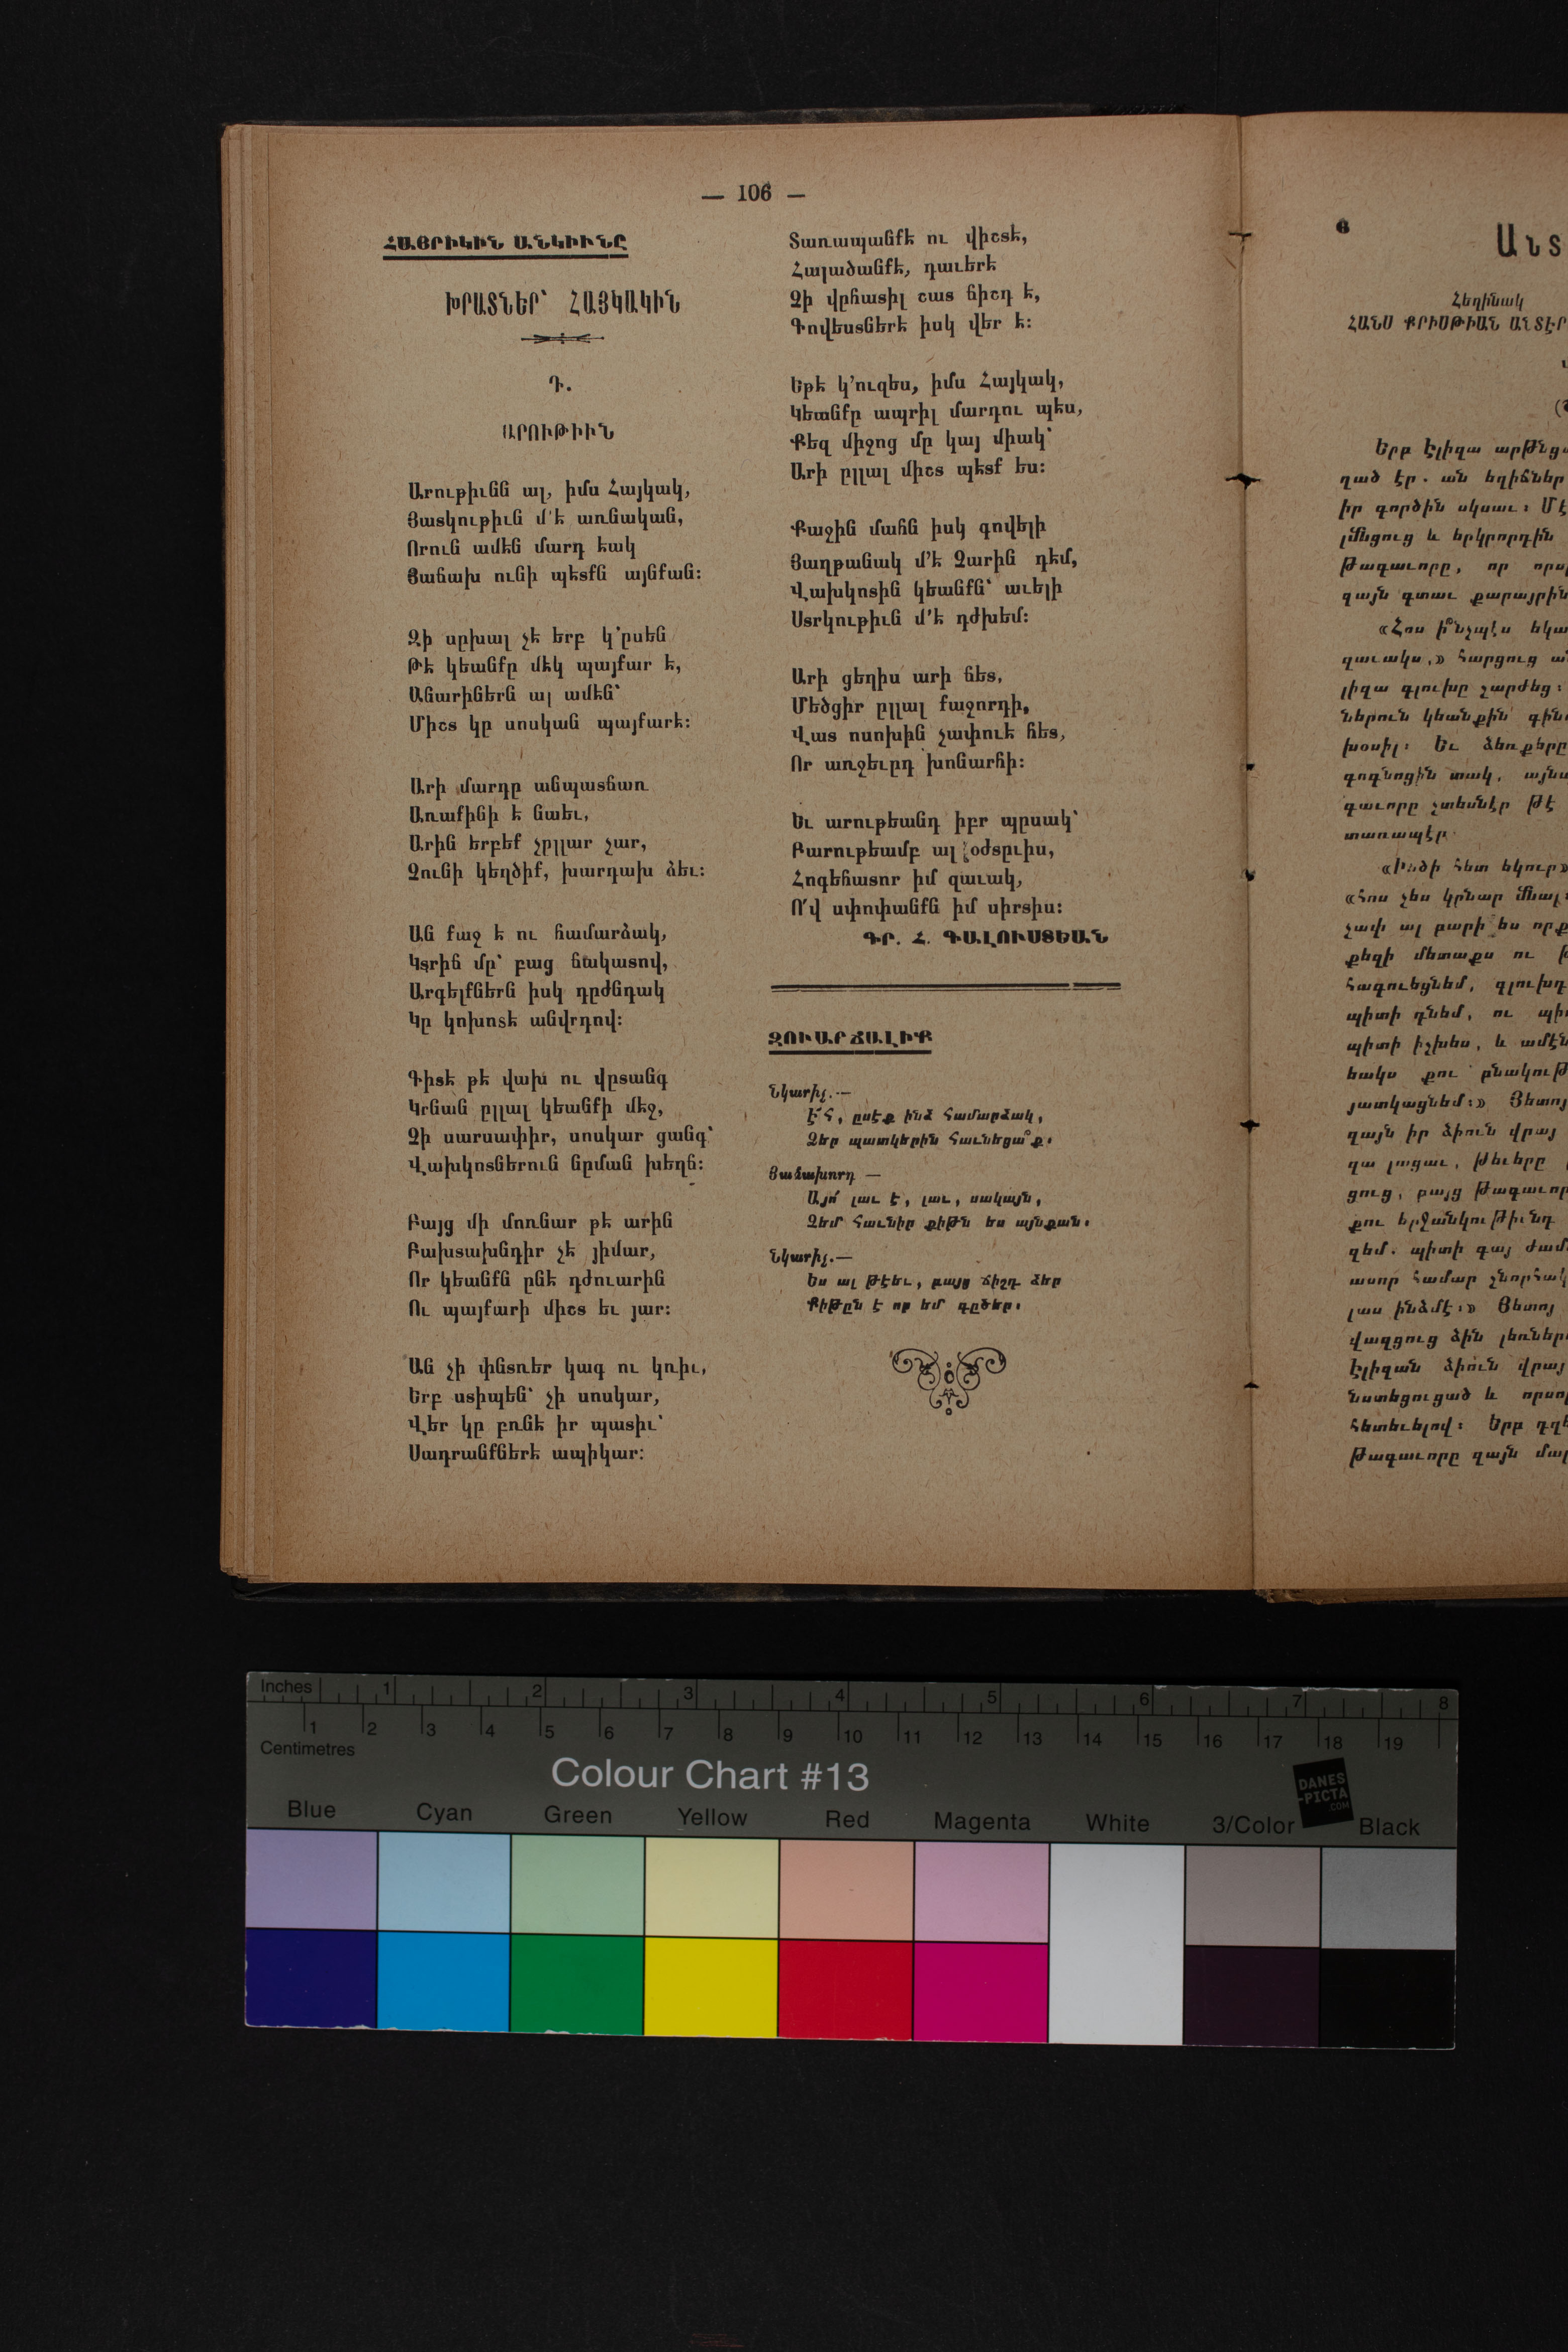 — 106 —
ՀԱՅՐԻԿԻՆ ԱՆԿԻՒՆԸ
ԽՐԱՏՆԵՐ՝ ՀԱՅԿԱԿԻՆ
Դ.
ԱՐՈՒԹԻՒՆ
Արութիւնն ալ, իմս Հայկակ,
Յատկութիւն մ՚է առնական,
Որուն ամէն մարդ էակ
Յաճախ ունի պէտքն այնքան։
Չի սըխալ չէ երբ կ՚ըսեն
Թէ կեանքը մէկ պայքար է,
Անարիներն ալ ամէն՝
Միշտ կը սոսկան պայքարէ։
Արի մարդը անպատճառ
Առաքինի է նաեւ,
Արին երբեք չըլլար չար,
Չունի կեղծիք, խարդախ ձեւ։
Ան քաջ է ու համարձակ,
Կտրիճ մը՝ բաց ճակատով,
Արգելքներն իսկ դըժնդակ
Կը կոխոտէ անվրդով։
Գիտէ թէ վախ ու վըտանգ
Կրնան ըլլալ կեանքի մէջ,
Չի սարսափիր, սոսկար ցանգ՝
Վախկոտներուն նըման խեղճ։
Բայց մի մոռնար թէ արին
Բախտախնդիր չէ յիմար,
Որ կեանքն ընէ դժուարին
Ու պայքարի միշտ եւ յար։
Ան չի փնտռեր կագ ու կռիւ,
Երբ ստիպեն՝ չի սոսկար,
Վեր կը բռնէ իր պատիւ՝
Սադրանքներէ ապիկար։
Տառապանքէ ու վիշտէ,
Հալածանքէ, դաւերէ
Չի վըհատիլ շատ ճիշդ է,
Գովեստներէ իսկ վեր է։
Եթէ կ՚ուզես, իմս Հայկակ,
Կեանքը ապրիլ մարդու պէս,
Քեզ միջոց մը կայ միակ՝
Արի ըլլալ միշտ պէտք ես։
Քաջին մահն իսկ գովելի
Յաղթանակ մ՚է Չարին դէմ,
Վախկոտին կեանքն՝ աւելի
Ստրկութիւն մ՚է դժխեմ։
Արի ցեղիս արի ճետ,
Մեծցիր ըլլալ քաջորդի,
Վատ ոսոխին չափուէ հետ,
Որ առջեւըդ խոնարհի։
Եւ արութեանդ իբր պըսակ՝
Բարութեամբ ալ օժտըւիս,
Հոգեհատոր իմ զաւակ,
Ո՜վ սփոփանքն իմ սիրտիս։
ԳՐ. Հ. ԳԱԼՈՒՍՏԵԱՆ
ԶՈՒԱՐՃԱԼԻՔ
Նկարիչ.—
Է՜հ, ըսէք ինձ համարձակ,
Ձեր պատկերին հաւնեցա՞ք.
Յաճախորդ —
Այո՛ լաւ է, լաւ, սակայն,
Չեմ հաւնիր քիթն ես այնքան.
Նկարիչ.—
Ես ալ թէեւ, բայց ճիշդ ձեր
Քիթըն է որ եմ գըծեր.
6
Անտ
Հեղինակ
ՀԱՆՍ ՔՐԻՍԹԻԱՆ ԱՆՏԷՐ
Երբ Էլիզա արթնցա
ղած էր. ան եղիճներ
իր գործին սկսաւ։ Մէ
լմնցուց և երկրորդին
Թագաւորը, որ որս
զայն գտաւ քարայրին
«Հոս ի՞նչպէս եկա
զաւակս,» հարցուց ան
լիզա գլուխը շարժեց։
ներուն կեանքին գին
խօսիլ։ Եւ ձեռքերը
գոգնոցին տակ, այնպ
գաւորը չտեսնէր թէ
տառապէր.
«Ինծի հետ եկուր»
«հոս չես կրնար մնալ։
չափ ալ բարի ես որք
քեզի մետաքս ու թ
հագուեցնեմ, գլուխդ
պիտի դնեմ, ու պի
պիտի իշխես, և ամէն
եակս քու բնակութ
յատկացնեմ։» Յետոյ
զայն իր ձիուն վրայ
զա լացաւ, թեւերը
ցուց, բայց Թագաւոր
քու երջանկութիւնդ
զեմ. պիտի գայ ժամ
ատոր համար շնորհակ
լաս ինձմէ։» Յետոյ
վազցուց ձին լեռներ
Էլիզան ձիուն վրայ
նստեցուցած և որսոր
հետեւելով։ Երբ դղե
Թագաւորը զայն մար
Inches 1 2 3 4 5 6 7 8
1 2 3 4 5 6 7 8 9 10 11 12 13 14 15 16 17 18 19
Centimetres
Colour Chart #13
DANES
-PICTA
.COM
Blue Cyan Green Yellow Red Magenta White 3/Color Black